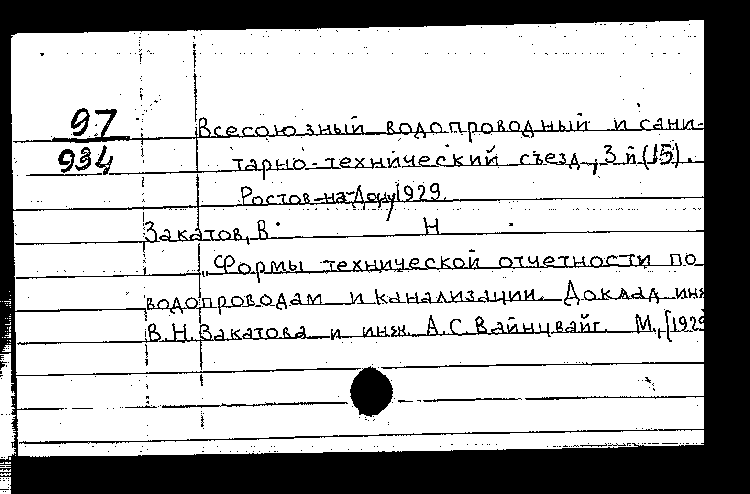 97
934
Всесоюзный водопроводный и сани-
тарно-технический съезд, 3й (15).
Ростов-на-Дону, 1929.
Закатов, В. Н.
Формы технической отчетности по
водопроводам и канализации. Доклад инж
В.Н. Закатова и инж. А.С. Вайнцвайг. М., [1929